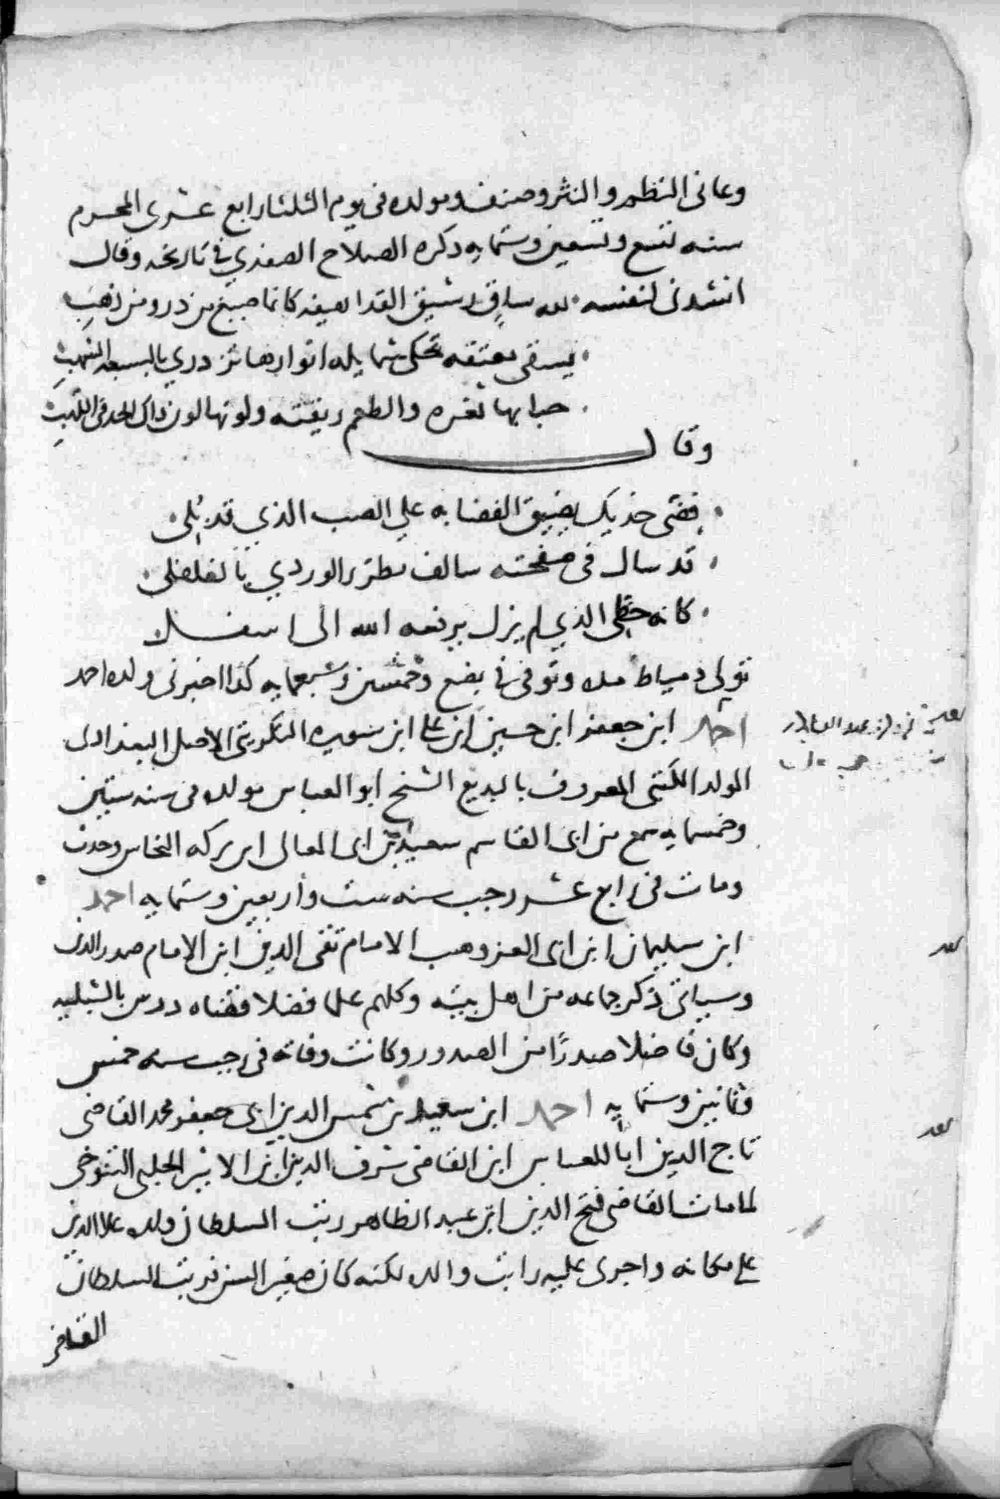 وعانى النظم والنثر وصنف ومولده فى يوم الثلثا رابع عشرى المحرم
سنه تسع وتسعين وستمايه ذكره الصلاح الصفدي فى تاريخه وقال
انشدنى لنفسه لله ساق رشيق القد اهيفه كانما صيغ من در ومن ذهب
يسقى معتقه تحكى شمايله انوارها تزدري بالسبعه الشهب
حبابها ثغره والطعم ريقته ولونها لون ذاك الخد فى اللهب
وقال
ففتى خديك يضيق الفضا به علي الصب الذي قد بلى
قد سال فى صفحته سالف مطرز الوردي بالفلفلى
كانه حظى الذي لم يزل يرفعه الله الى اسفلا
تولى دمياط مده وتوفى فى بضع وخمسين وسبعمايه كذا اخبرنى ولده احمد
احمد ابن جعفر ابن حسين ابن على ابن التكريتى الاصل البغدادى
المولد الكتبى المعروف بالبديع الشيخ ابو العباس مولده فى سنه ستين
وخمسمايه سمع من ابى القاسم سعيد بن ابى المعالى ابن بركه النخاس وحدث
ومات فى رابع عشر رجب سنه ست وأربعين وستمايه احمد
ابن سليمان ابن ابى العز وهب الامام تقى الدين ابن الامام صدر الدين
وسياتى ذكر جماعه من اهل بيته وكلهم علما فضلا فقهاه درس بالشبليه
وكان فاضلا صدرًا من الصدور وكانت وفاته فى رجب سنه خمس
وثمانين وستمايه احمد ابن سعيد بن شمس الدين ابى جعفر محمد القاضى
تاج الدين ابا للعباس ابن القاضى شرف الدين ابن الاثير الحلبى التنوخى
لما مات القاضى فتح الدين ابن عبد الظاهر رتب السلطان ولده علا الدين
على مكانه واجرى عليه راتب والده لكنه كان صغير السن فرتب السلطان
القاضى